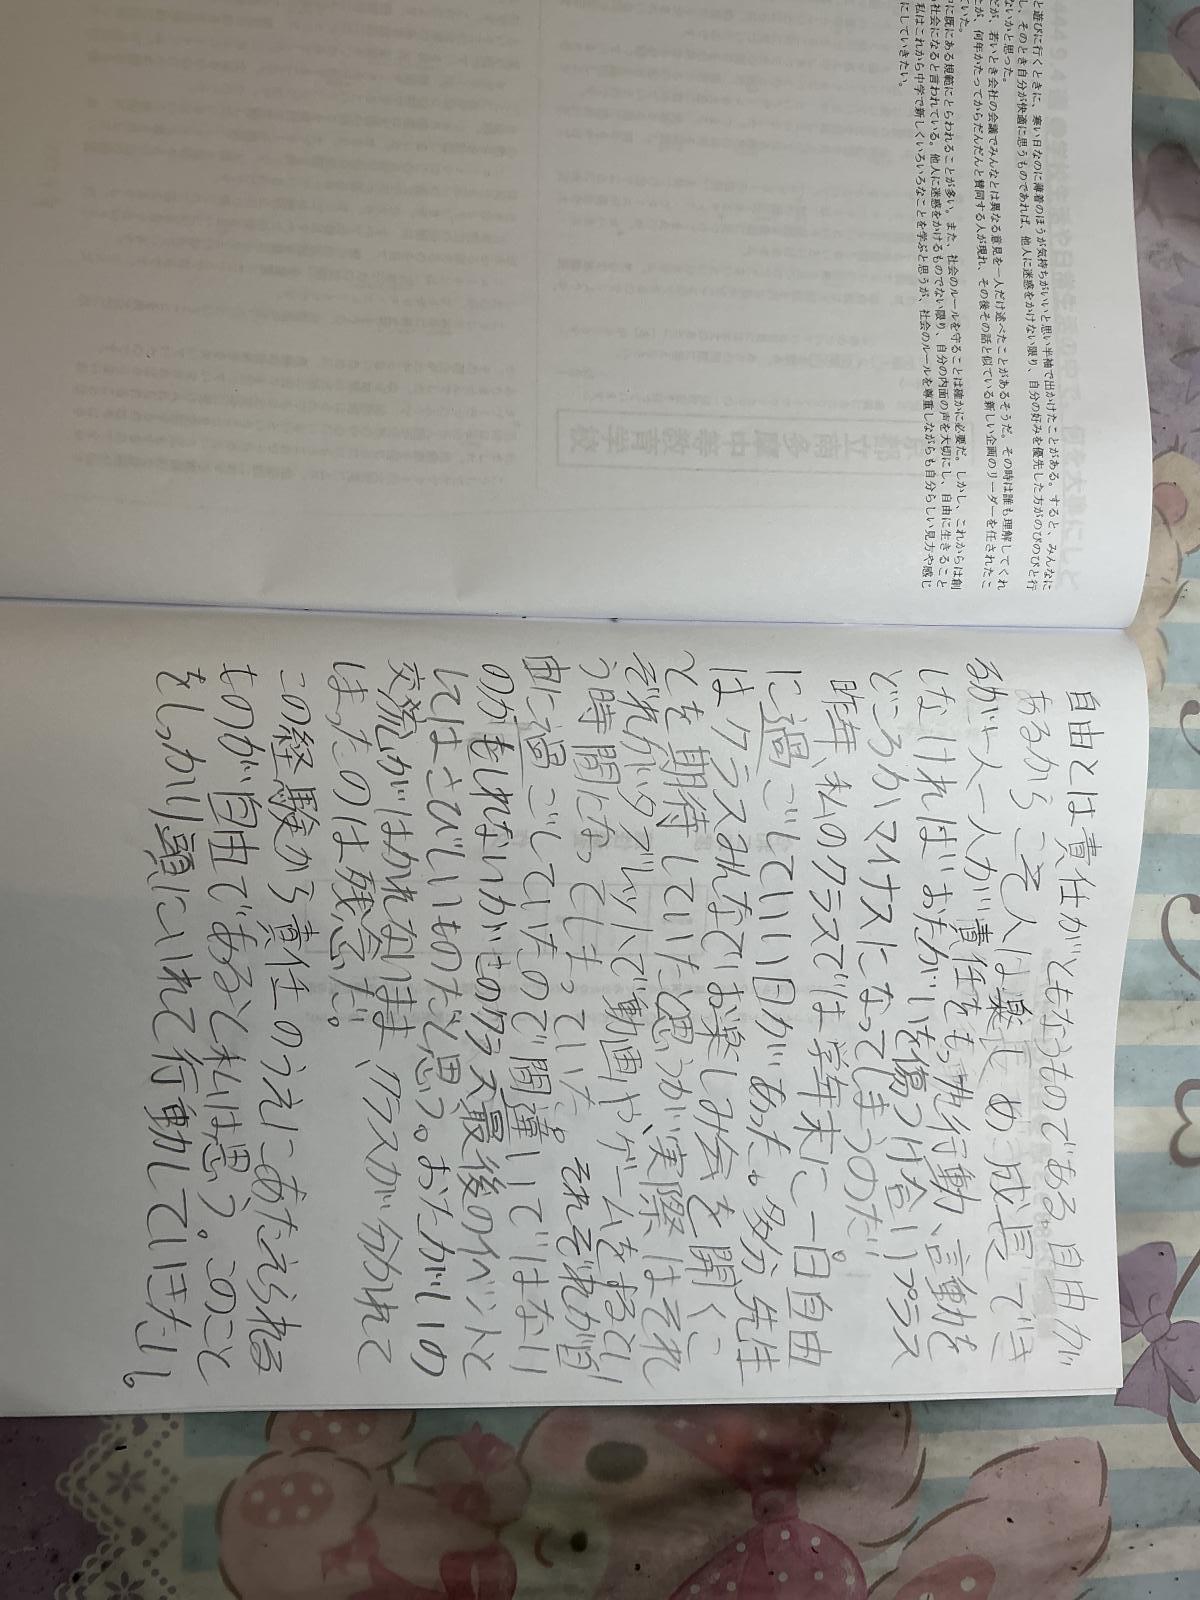 と遊びに行くときに、寒い日なのに薄着のほうが気持ちがいいと思い半袖で出かけたことがある。すると、みんなに
し、そのとき自分が快適に思うものであれば、他人に迷惑をかけない限り、自分の好みを優先した方がのびのびと行
ないかと思った。
だが、若いとき会社の会議でみんなとは異なる意見を一人だけ述べたことがあるそうだ。その時は誰も理解してくれ
とが、何年かたってからだんだんと賛同する人が現れ、その後その話と似ている新しい企画のリーダーを任されたこ
ていた。
に既にある規範にとらわれることが多い。また、社会のルールを守ることは確かに必要だ。しかし、これからは創
る社会になると言われている。他人に迷惑をかけるものでない限り、自分の内面の声を大切にし、自由に生きること
私はこれから中学で新しくいろいろなことを学ぶと思うが、社会のルールを尊重しながらも自分らしい見方や感じ
にしていきたい。
自由とは責任がともなうものである自由が
あるからこそ人は楽しめ成長でき
るが一人一人が責任をもった行動、言動を
しなければおたがいを傷つけ合いプラス
どころかマイナスになってしまうのだ。
昨年、私のクラスでは学年末に一日自由
に過ごしていい日があった。多分先生
はクラスみんなでお楽しみ会を開くこ
とを期待していたと思うが、実際はそれ
ぞれがタブレットで動画やゲームをするとい
う時間になってしまっていた。それぞれが自
由に過ごしていたので間違してではない
のかもしれないがそのクラス最後のイベントと
してはさびしいものだと思う。おたがいの
交流がはかれないまま、クラスが分かれて
しまったのは残念だ。
この経験から責任のうえにあたえられる
ものが自由であると私は思う。このこと
をしっかり頭にいれて行動していきたい。